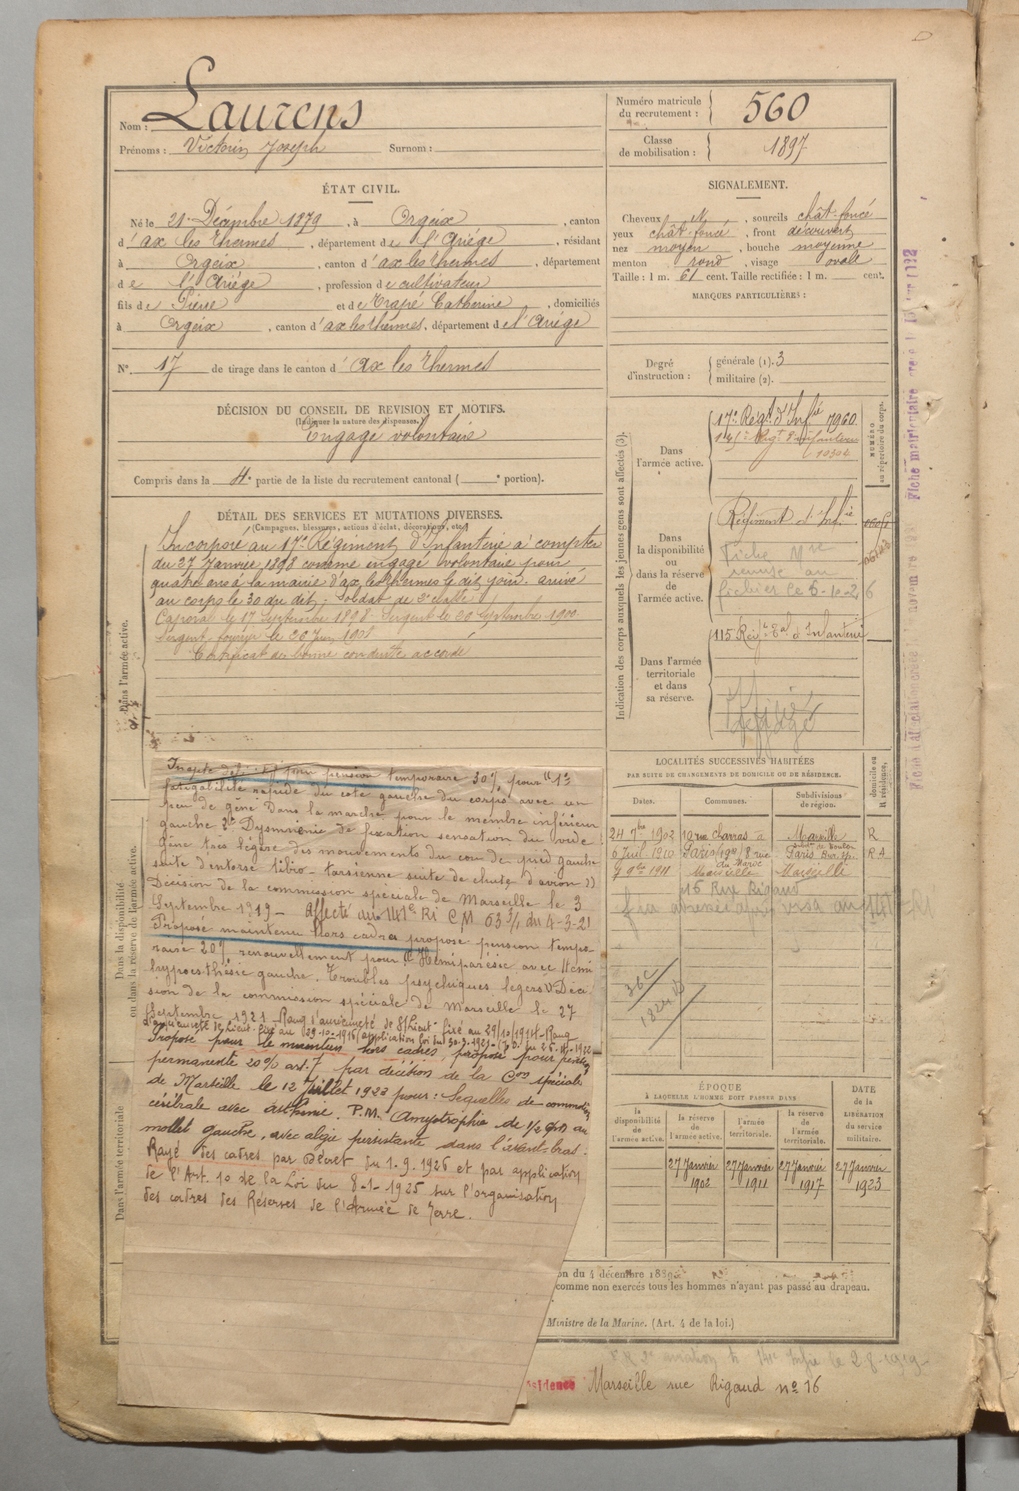 Nom : Laurens
Prénoms : Victorin Joseph Surnom :
Numéro matricule du recrutement : 560
Classe de mobilisation : 1897
ÉTAT CIVIL.
Né le 21 Décembre 1879, à Orgeix, canton
d'ax les thermes, département de l'Ariége, résidant
à Orgeix, canton d'ax les thermes, département
de l'Ariége, profession de cultivateur
fils de Pierre et de Trapé Catherine, domiciliés
à Orgeix, canton d'ax les thermes, département de l'Ariége
N° 17 de tirage dans le canton d'ax les Thermes
DÉCISION DU CONSEIL DE REVISION ET MOTIFS.
(Indiquer la nature des dispenses.)
Engagé volontaire
Compris dans la 4e partie de la liste du recrutement cantonal ( e portion).
DÉTAIL DES SERVICES ET MUTATIONS DIVERSES.
(Campagnes, blessures, actions d'éclat, décorations, etc.)
Incorporé au 17e Régiment d'Infanterie à compter
du 27 Janvier 1898 comme engagé volontaire pour
quatre ans à la mairie d'ax les thermes le dit jour. arrivé
au corps le 30 du dit, Soldat de 2e classe
Caporal le 17 Septembre 1898 Sergent le 20 Septembre 1900
Sergent fourrier le 20 Juin 1901
Certificat de bonne conduite accordé
Dans l'armée active.
Dans la disponibilité ou dans la réserve de l'armée active.
Dans l'armée territoriale
pension temporaire 30% pour "1°
fatigabilité rapide du coté gauche du corps avec un
peu de gêne dans la marche pour le membre inférieur
gauche 2° Dysmnésie de fixation sensation du vide
gêne très légère des mouvements du cou de pied gauche
suite d'entorse tibio-tarsienne suite de chute d'avion"
Décision de la commission spéciale de Marseille le 3
Septembre 1919 - Affecté au 141e RI C.M. 63 3/1 du 4-3-21
Proposé maintenu hors cadres proposé pension tempo-
raire 20% renouvellement pour "Hémiparésie avec Hémi
hypoesthésie gauche. Troubles psychiques légers" Déci
sion de la commission spéciale de Marseille le 27
Septembre 1921 Rang d'ancienneté de S/Lieut. fixé au 29/10/1914 - Rang
d'ancienneté de Lieut. fixé au 29-10-1916 (application loi du
Proposé pour le maintien hors cadres, proposé pour pension
permanente 20% art. 7 par décision de la Con spéciale
de Marseille le 12 Juillet 1923 pour : Sequelles de commotion
cérébrale avec asthénie. P.M. Amyotrophie de 1/2 cm au
mollet gauche, avec algie persistante dans l'avant-bras.
Rayé des cadres par Décret du 1.9.1926 et par application
de l'Art. 10 de la Loi du 8-1-1925 sur l'organisation
des cadres des Réserves de l'Armée de Terre.
SIGNALEMENT.
Cheveux N, sourcils chât-foncé
yeux chât-foncé, front découvert
nez moyen, bouche moyenne
menton rond, visage ovale
Taille : 1 m. 61 cent. Taille rectifiée : 1 m. cent.
MARQUES PARTICULIÈRES :
Degré d'instruction : générale (1). 3
militaire (2).
Indication des corps auxquels les jeunes gens sont affectés (3).
NUMÉRO au répertoire du corps.
Dans l'armée active.
17e Régt d'Infie 7960
Dans la disponibilité ou dans la réserve de l'armée active.
Régiment d'Infie
Fiche
remise au
fichier le 6-10-26
Dans l'armée territoriale et dans sa réserve.
115 Régt tal d'Infanterie
LOCALITÉS SUCCESSIVES HABITÉES
PAR SUITE DE CHANGEMENTS DE DOMICILE OU DE RÉSIDENCE.
Dates. Communes. Subdivisions de région. D domicile ou R résidence.
24 7bre 1902 10 rue Charras à Marseille R
6 Juil. 1910 Paris 8 rue Paris
9bre 1911 Marseille Marseille
16 Rue Rigaud
ÉPOQUE
À LAQUELLE L'HOMME DOIT PASSER DANS
la disponibilité de l'armée active. la réserve de l'armée active. l'armée territoriale. la réserve de l'armée territoriale.
DATE de la LIBÉRATION du service militaire.
27 Janvier 1902 27 Janvier 1911 27 Janvier 1917 27 Janvier 1923
on du 4 décembre 1889
comme non exercés tous les hommes n'ayant pas passé au drapeau.
Ministre de la Marine. (Art. 4 de la loi.)
Marseille rue Rigaud no 16